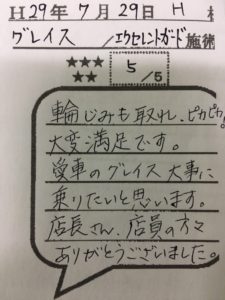 H29年7月29日 H 様
グレイス / エクセレントガード 施術
★★★
★★
5 /5
輪じみも取れ、ピカピカ!
大変満足です。
愛車のグレイス 大事に
乗りたいと思います。
店長さん、店員の方々
ありがとうございました。